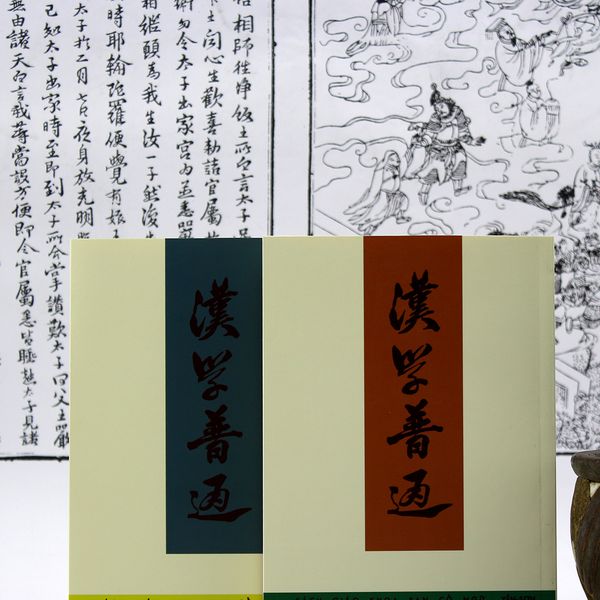 相師往淨飯王所白言太子是
聞心生歡喜勅諸官屬
勿令太子出家宮內
為我生汝一子然後
時耶輸陀羅便覺有娠
太子於二月七日夜身放光明照
己知太子出家時至即到太子所合掌讚歎太子曰父王嚴
無由諸天白言我等當設方便即令官屬悉皆睡熟太子見諸
漢学普通
漢学普通